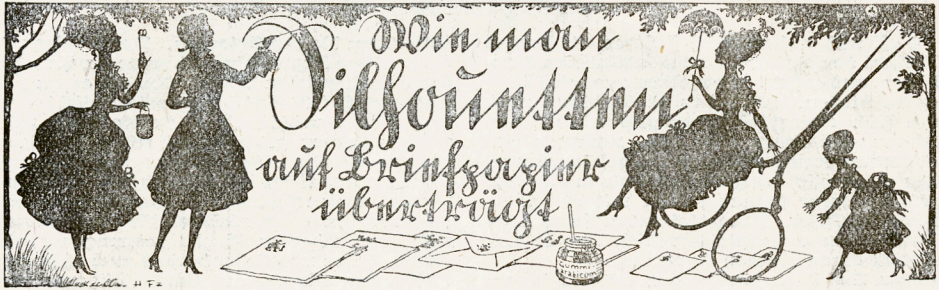 Wie man
Silhouetten
auf Briefpapier
überträgt
Gummi
arabicum
H F 2